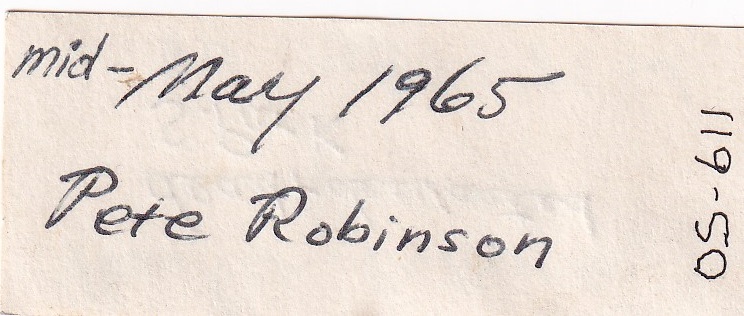 mid-May 1965
Pete Robinson
OS-611